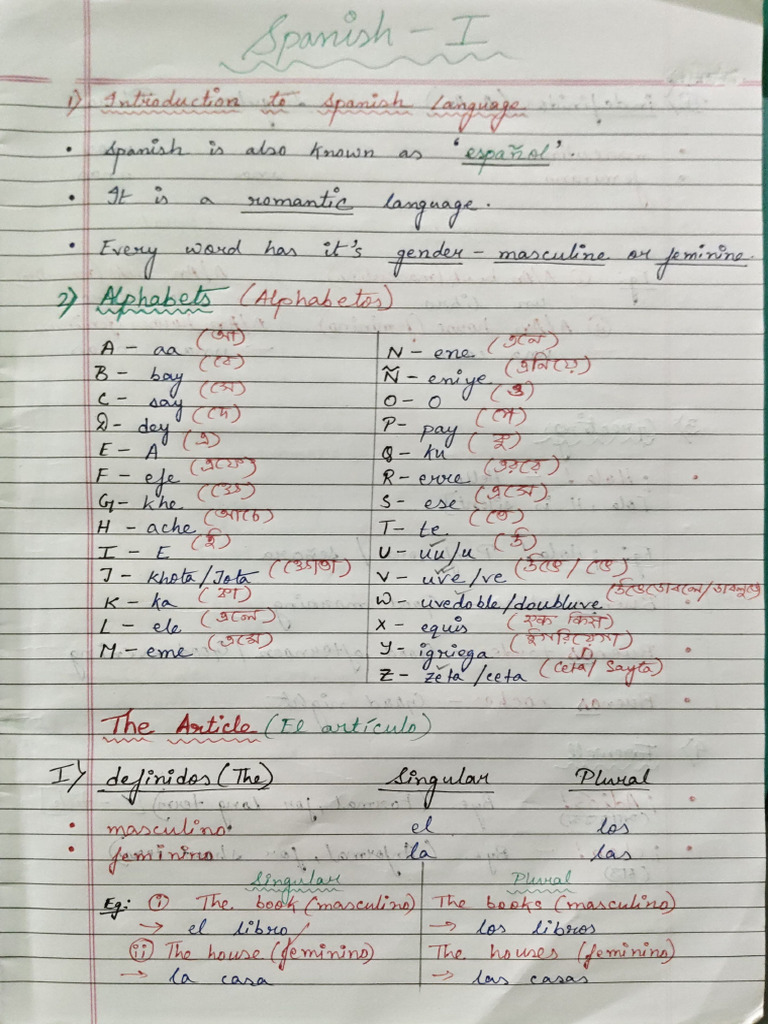 Spanish - I
1) Introduction to Spanish Language
• Spanish is also known as 'español'.
• It is a romantic language.
• Every word has it's gender - masculine or feminine.
2) Alphabets (Alphabetos)
A - aa (আ)
B - bay (বে)
C - say (সে)
D - dey (দে)
E - A (এ)
F - efe (এফে)
G - khe (খে)
H - ache (আচে)
I - E (ই)
J - Khota/Jota (খোতা)
K - ka (কা)
L - ele (এলে)
M - eme (এমে)
N - ene (এনে)
Ñ - eniye (এনিয়ে)
O - O (ও)
P - pay (পে)
Q - ku (কু)
R - erre (এররে)
S - ese (এসে)
T - te (তে)
U - uu/u (উ)
V - uve/ve (উভে / ভে)
W - uvedoble/doubluve (উভেডোবলে/ডাবলুভে)
X - equis (एक किस)
Y - igriega (ইগরিয়েগা)
Z - zeta/ceta (Ceta/Sayta)
The Article (El artículo)
I) definidos (The) Singular Plural
• masculino. el los
• feminino la las
Singular Plural
Eg: i The book (masculino) The books (masculino)
→ el libro → los libros
ii The house (feminino) The houses (feminino)
→ la casa → las casas